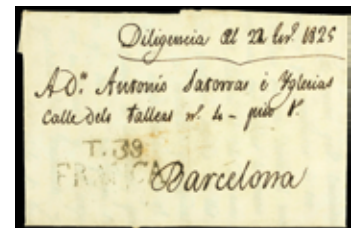 Diligencia el 22 1825
A Dn. Antonio Satorras è Yglesias
Calle dels Tallers nº. 4 - piso 1º.
T. 39
FRANCA
Barcelona